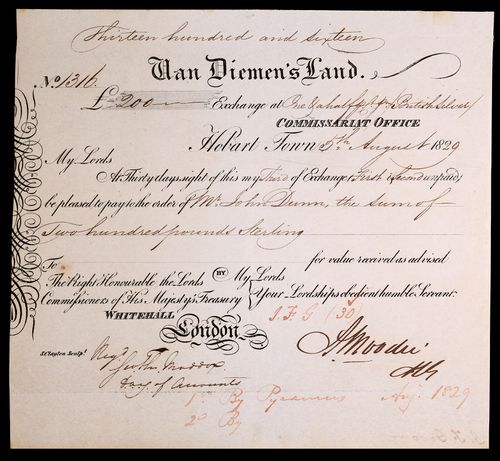 Thirteen hundred and sixteen
No. 1316. Van Diemen's Land.
£ 200 Exchange at One & a half British Silver
COMMISSARIAT OFFICE
Hobart Town 5th August 1829
My Lords
At Thirty days sight of this my Third of Exchange (First & Second unpaid)
be pleased to pay to the order of Mr. John Dunn, the sum of
Two hundred pounds Sterling
for value received as advised
To
The Right Honourable the Lords BY My Lords
Commissioners of His Majesty's Treasury Your Lordships obedient humble Servant
WHITEHALL J. F. G (30)
London
S. Clayton Sculpt.
Regd
Geo. Thos. Maddox
Day of Accounts
A. Moodie
1st By Pyramus Aug. 1829
2d By